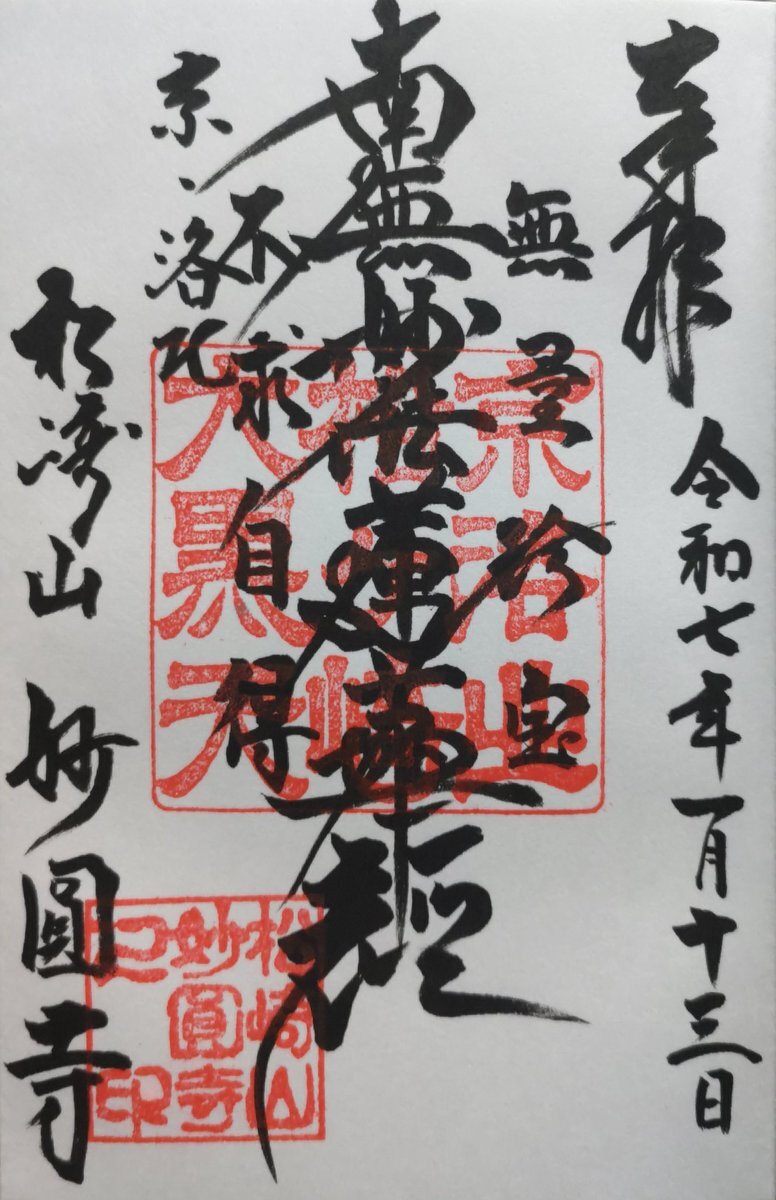 奉拝
令和七年一月十三日
無量珍宝
南無妙法蓮華経
不求自得
京、洛北
松崎山 妙圓寺
京洛北
松ヶ崎
大黒天
松崎山
妙圓寺
之印